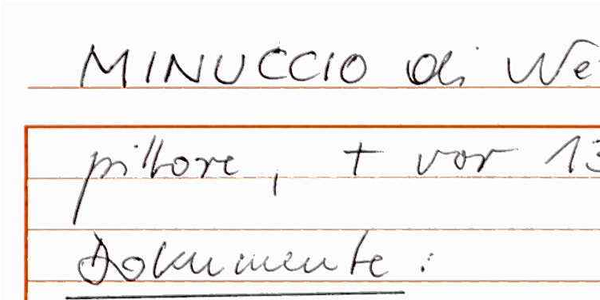 MINUCCIO di Ne
pittore, + vor 13
Dokumente: